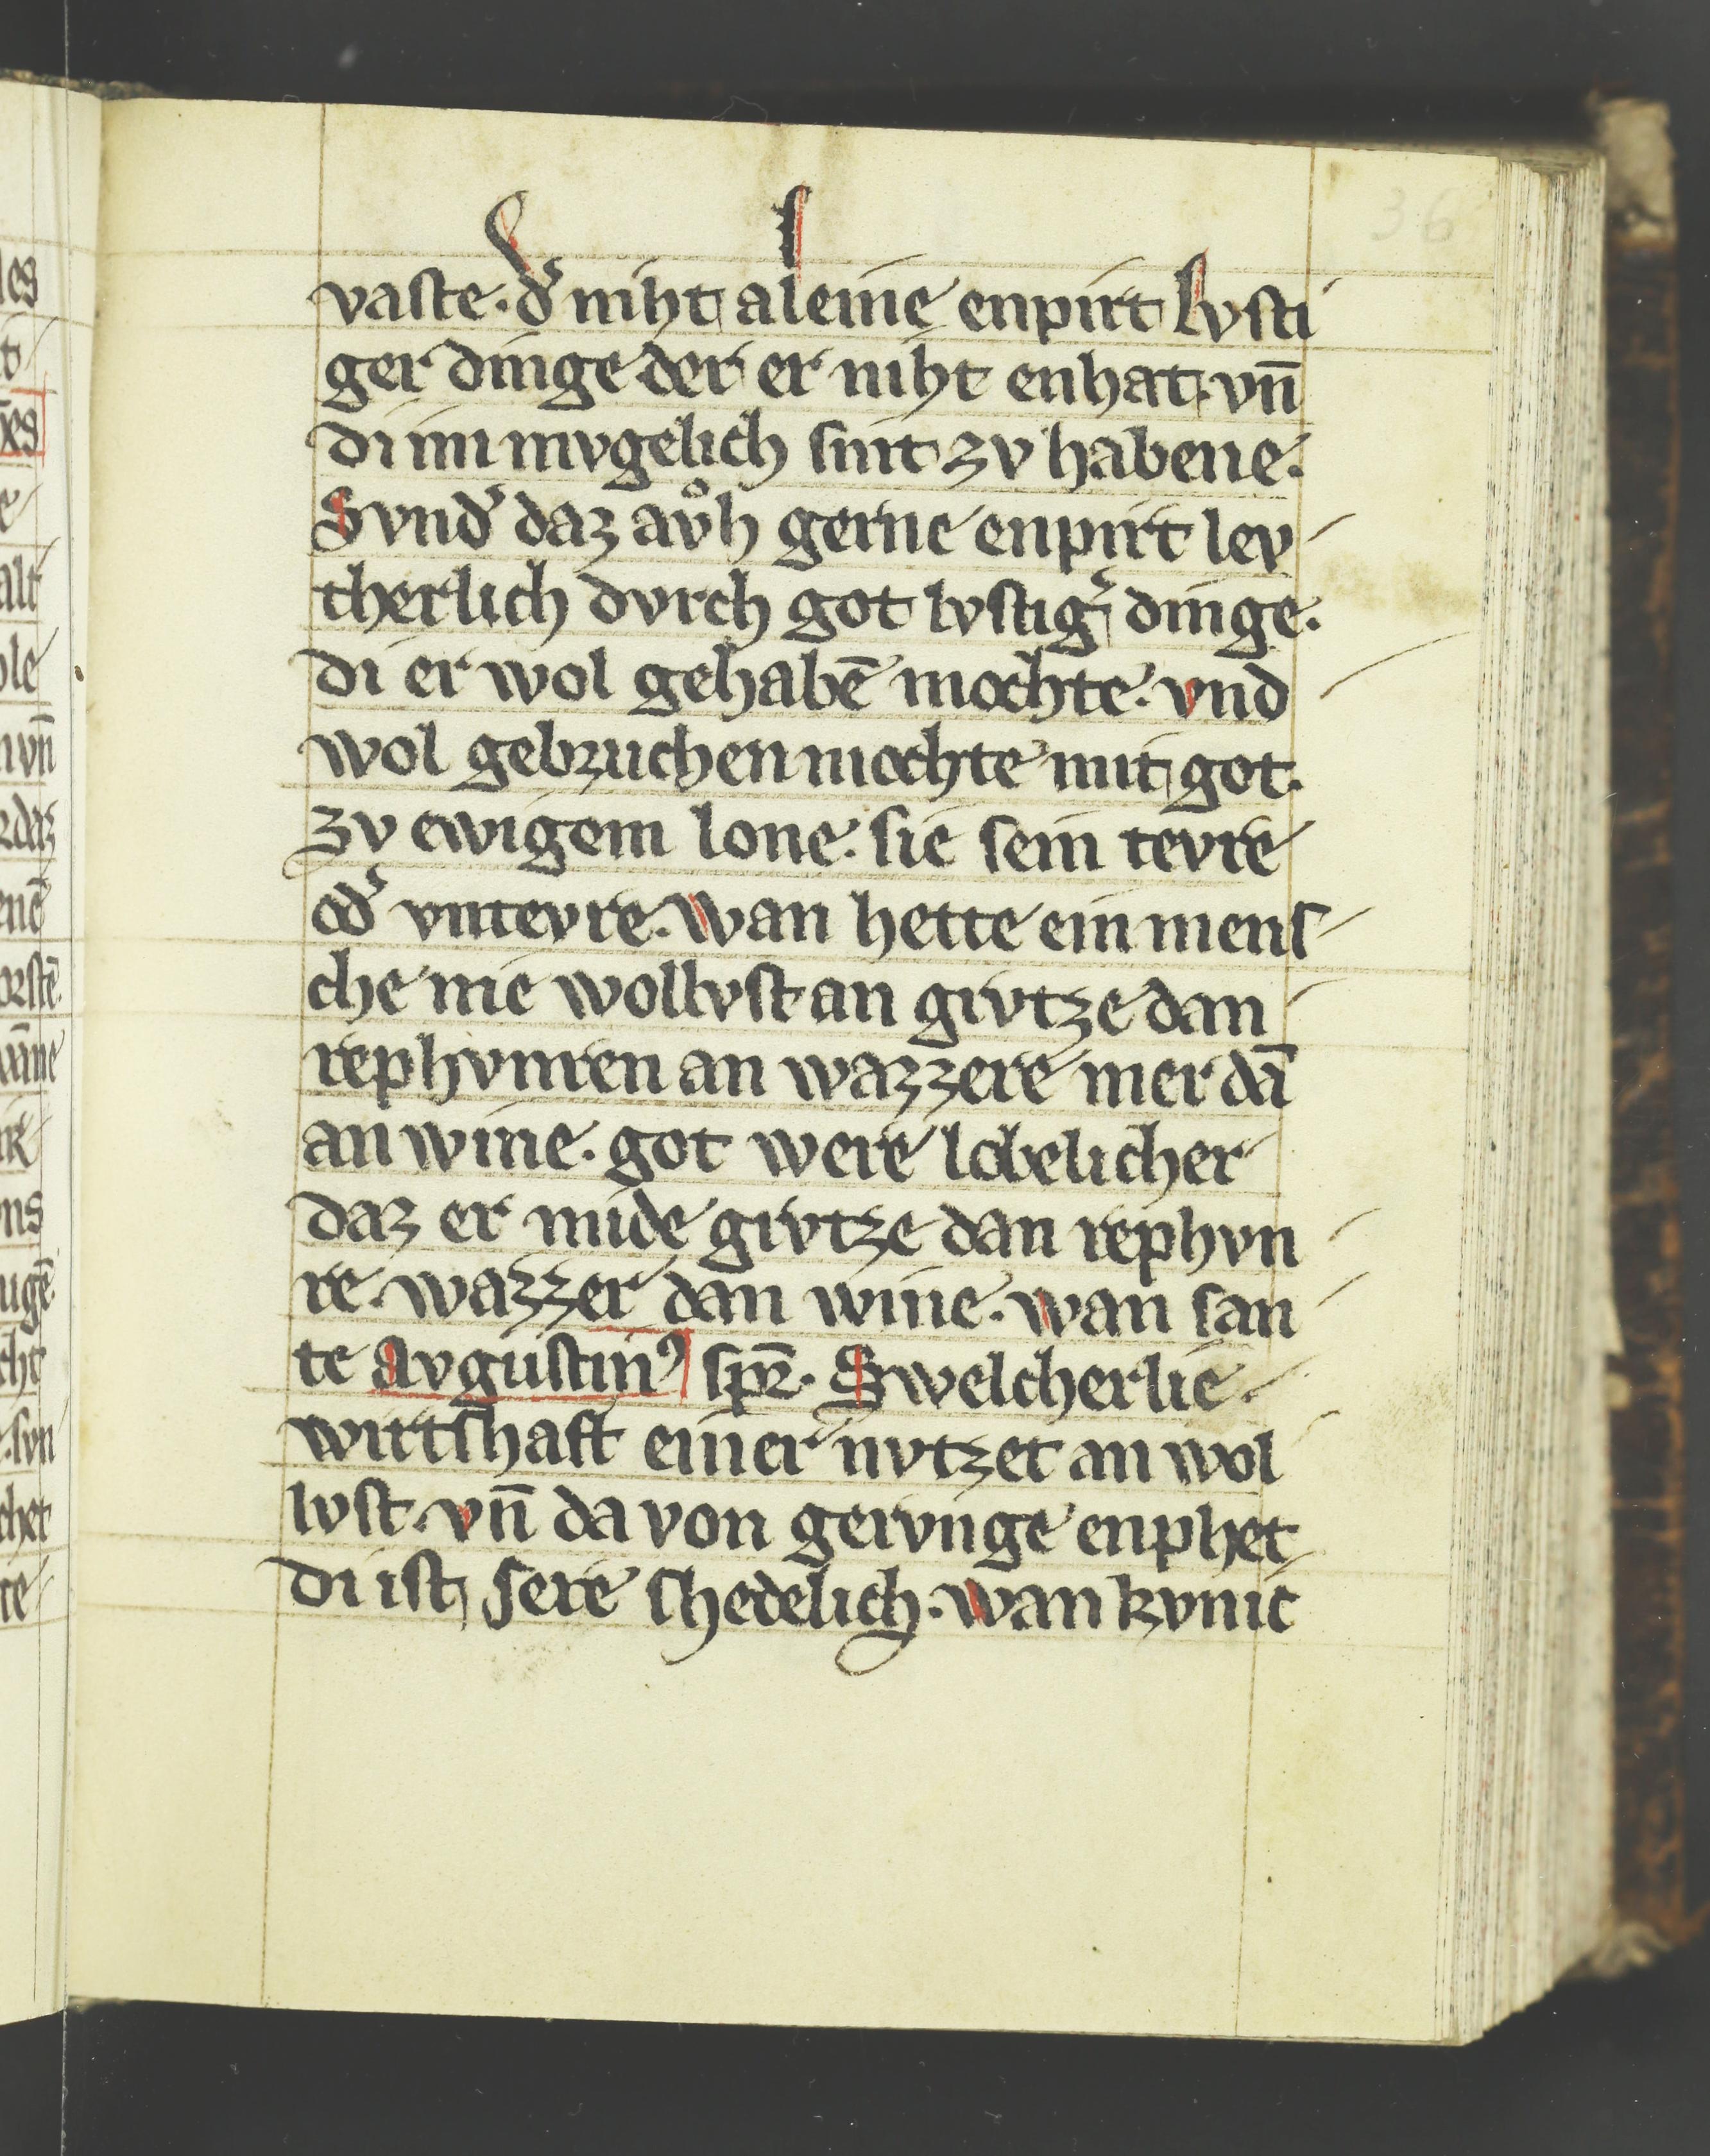 36
vaste· d̾ niht aleine enpirt lvsti
ger dinge der er niht enhat· vn̄
di im mvgelich sint zv habene·
Svnd̾ daz avͦh gerne enpirt lev
therlich dvrch got lvstig̾ dinge·
di er wol gehabē mochte· vnd
wol gebruchen mochte mit got·
zv ewigem lone· sie sein tevre
od̾ vntevre· Wan hette ein mens
che nie wollvst an grvtze dan
rephvnren an wazzere mer dā
an wine· got were lobelicher
daz er mide grvtze dan rephvn
re· wazzer dan wine· wan san
te Avgustin⁹ spꝛ̄· Swelcherlie
wirtshaft einer nvtzet an wol
lvst· vn̄ da von gervnge enphet
di ist sere shedelich· wan kvnic